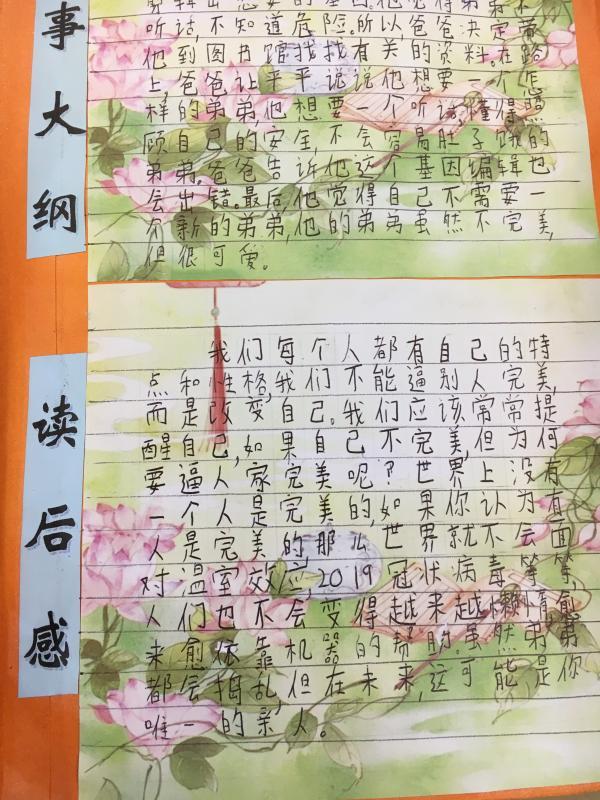 事大纲
听话,不知道危险。所以,爸爸决定带
他到图书馆找找有关的资料。在路
上,爸爸让平平说说他想要一个怎
样的弟弟,他想要一个听话,懂得照
顾自己的安全,不会容易肚子饿的
弟弟,爸爸告诉他这个基因编辑也
会出错。最后,他觉得自己不需要一
个新的弟弟,他的弟弟虽然不完美,
但很可爱。
读后感
我们每个人都有自己的特
点和性格,我们不能逼别人完美,
而是改变自己。我们应该常常提
醒自己,如果自己不完美,但为何
要逼人家完美呢?世界上没有
一个人是完美的,如果你认为有
人是完美的,那么世界就不会面
对温室效应,2019冠状病毒等等,
人们也不会变得越来越懒惰,愈
来愈依靠机器的帮助。虽然弟弟
都会捣乱,但在未来,这可能是你
唯一的亲人。